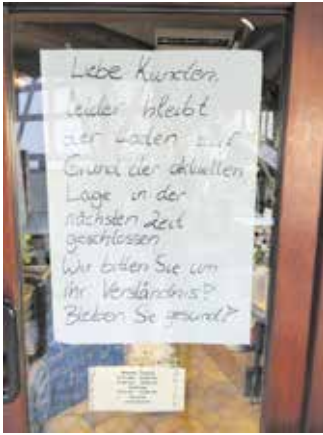 Liebe Kunden,
leider bleibt
der Laden auf
Grund der aktuellen
Lage in der
nächsten Zeit
geschlossen
Wir bitten Sie um
Ihr Verständnis!
Bleiben Sie gesund!